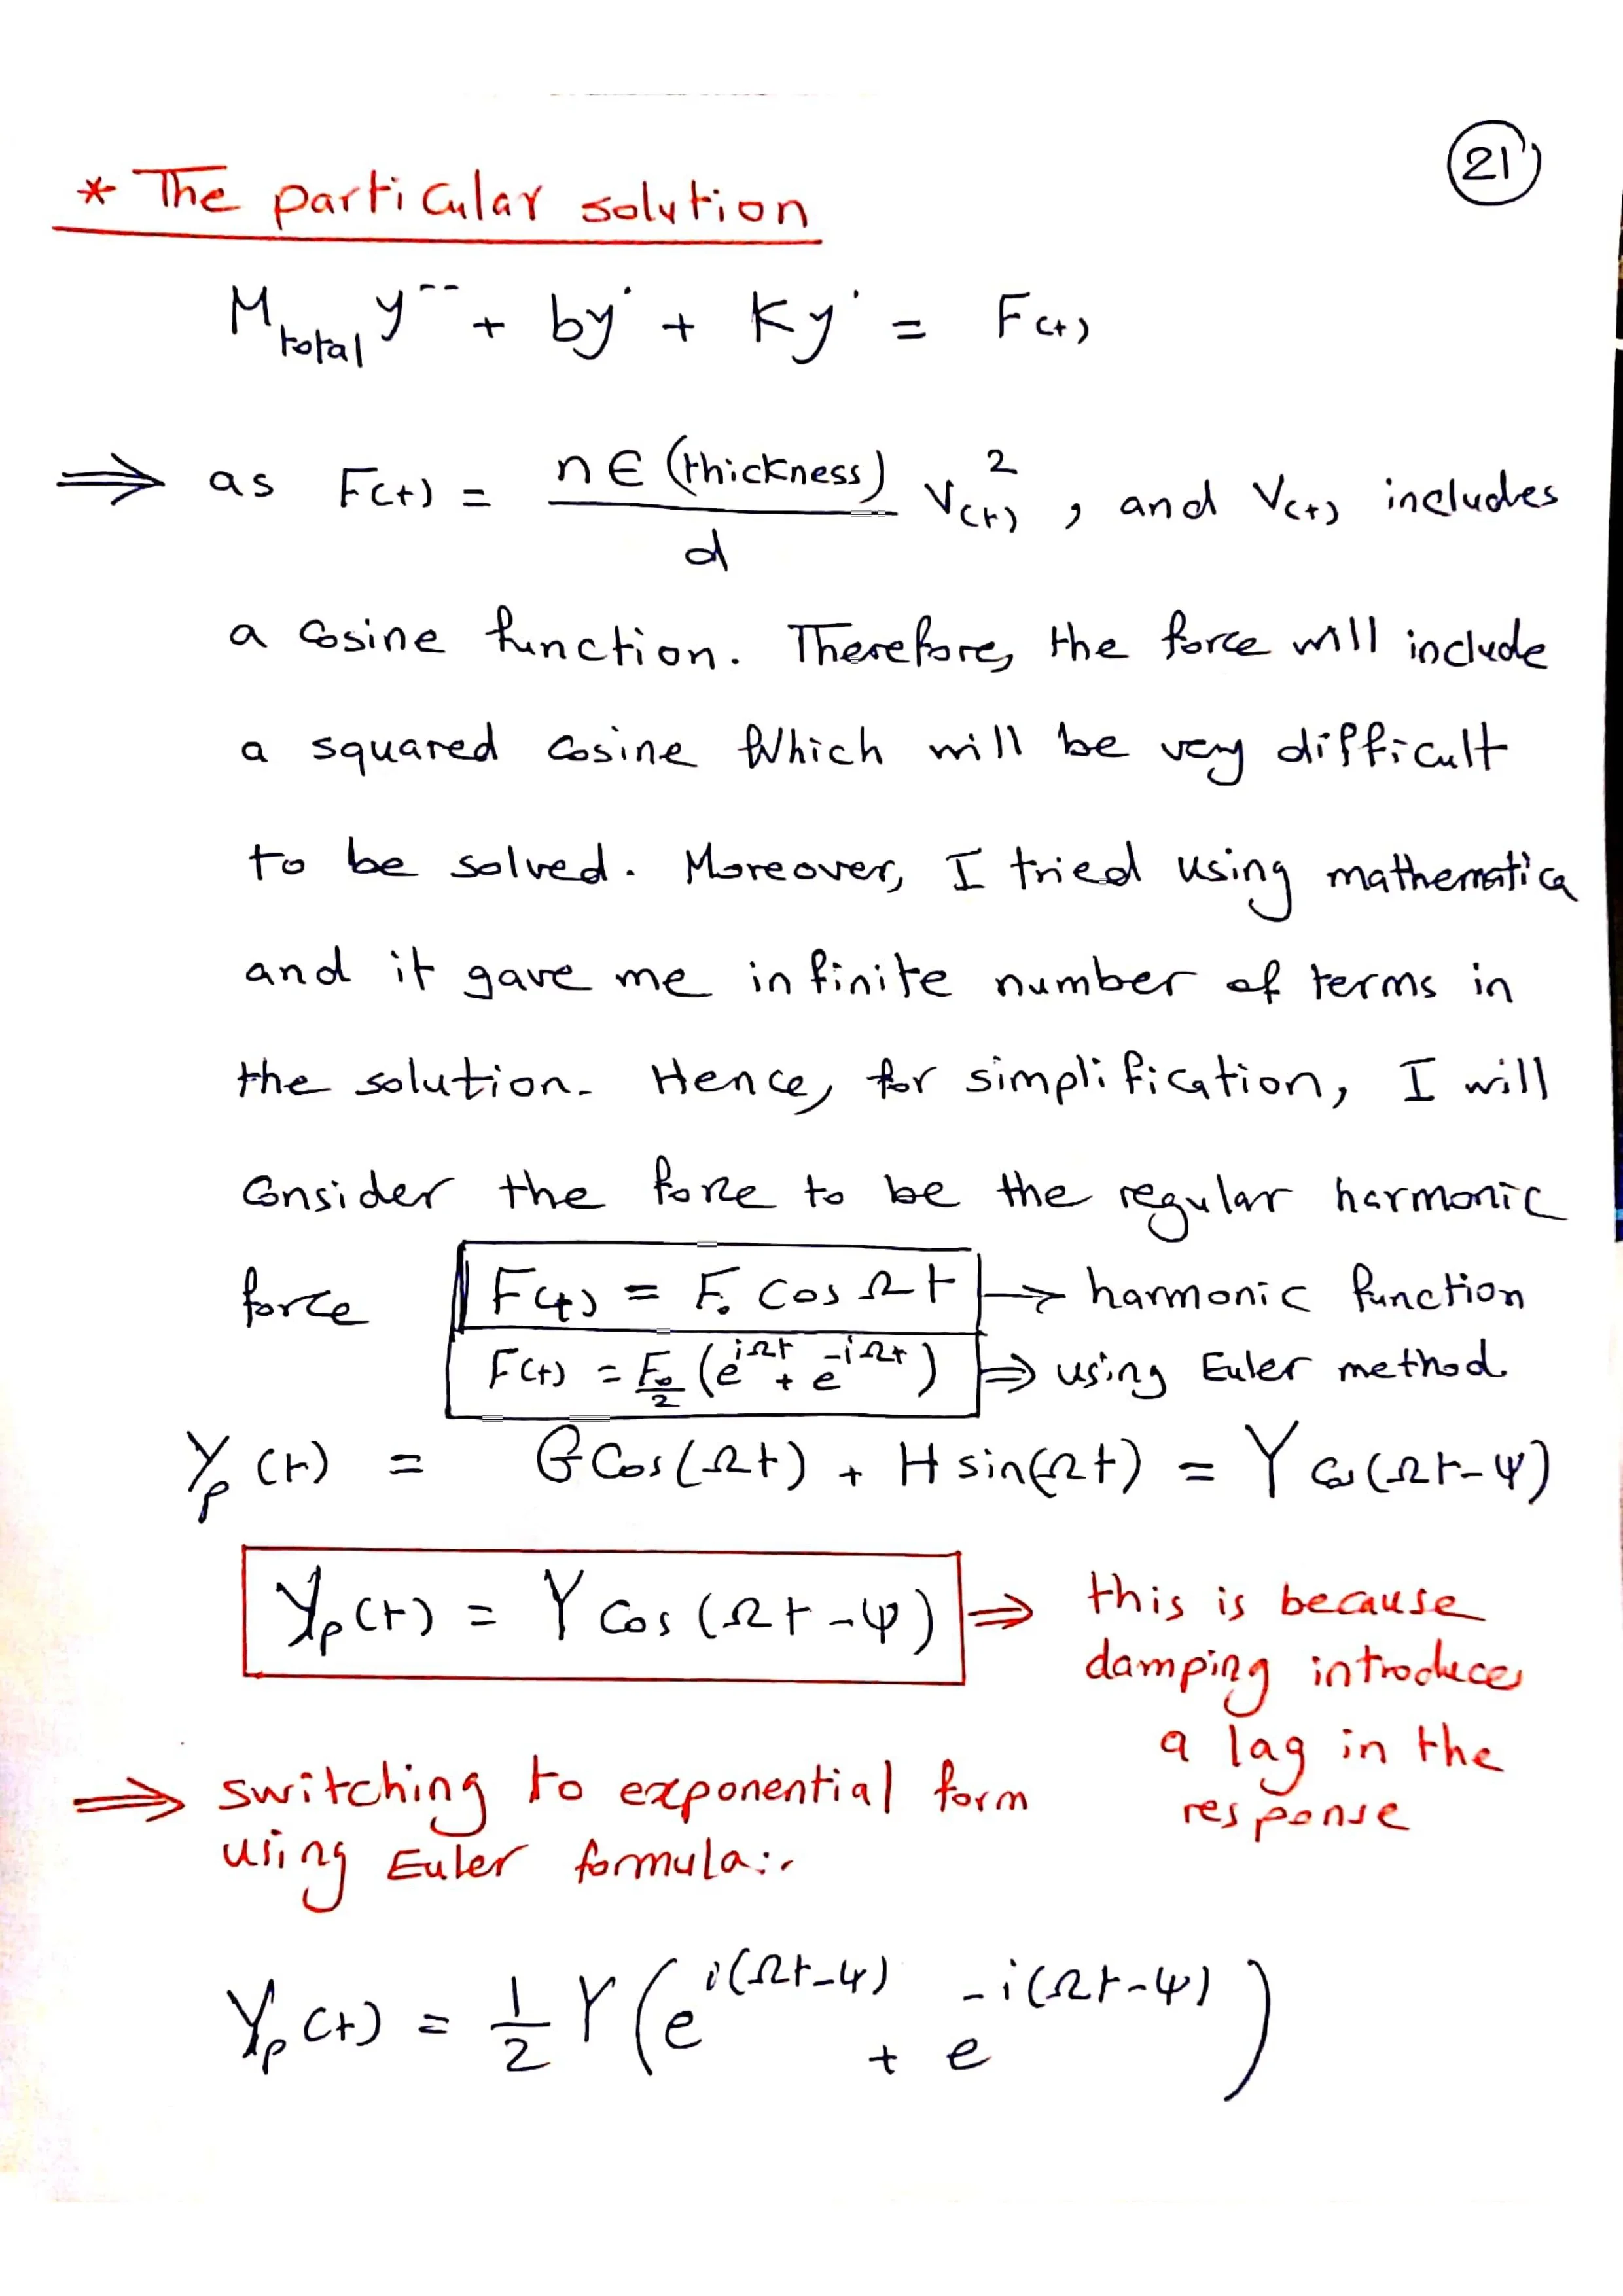 21
* The particular solution
M total y¨ + bẏ + Kẏ = F(t)
⇒ as F(t) = nϵ (thickness) / d V(t)², and V(t) includes
a cosine function. Therefore, the force will include
a squared cosine which will be very difficult
to be solved. Moreover, I tried using mathematica
and it gave me infinite number of terms in
the solution. Hence, for simplification, I will
consider the force to be the regular harmonic
force F(t) = F₀ cos Ωt → harmonic function
F(t) = F₀/2 (e^{iΩt} + e^{-iΩt}) ⇒ using Euler method
Yp(t) = G cos(Ωt) + H sin(Ωt) = Y cos(Ωt-ψ)
Yp(t) = Y cos(Ωt-ψ) ⇒ this is because
damping introduces
a lag in the
response
⇒ switching to exponential form
using Euler formula:-
Yp(t) = 1/2 Y (e^{i(Ωt-ψ)} + e^{-i(Ωt-ψ)})